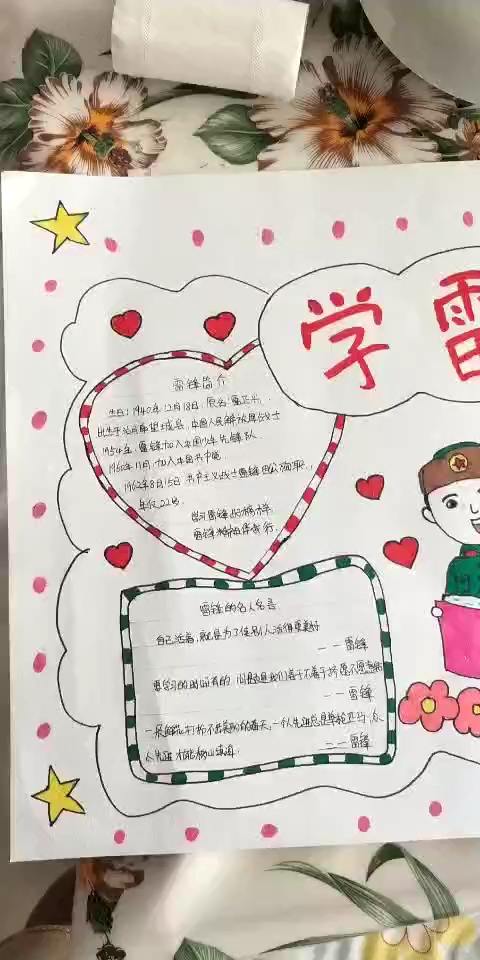 学雷
雷锋简介
生日:1940年12月18日,原名:雷正兴,
出生于湖南望城县,中国人民解放军战士
1954年,雷锋加入中国少年先锋队
1960年11月,加入中国共产党
1962年8月15日 共产主义战士雷锋因公殉职,
年仅22岁.
学习雷锋好榜样
雷锋精神伴我行.
雷锋的名人名言
自己活着,就是为了使别人活得更美好
——雷锋
要学习的时间有的 问题是我们善于不善于挤 愿不愿意钻
——雷锋
一朵鲜花打扮不出美丽的春天,一个人先进总是单枪匹马,众
人先进才能移山填海.
——雷锋